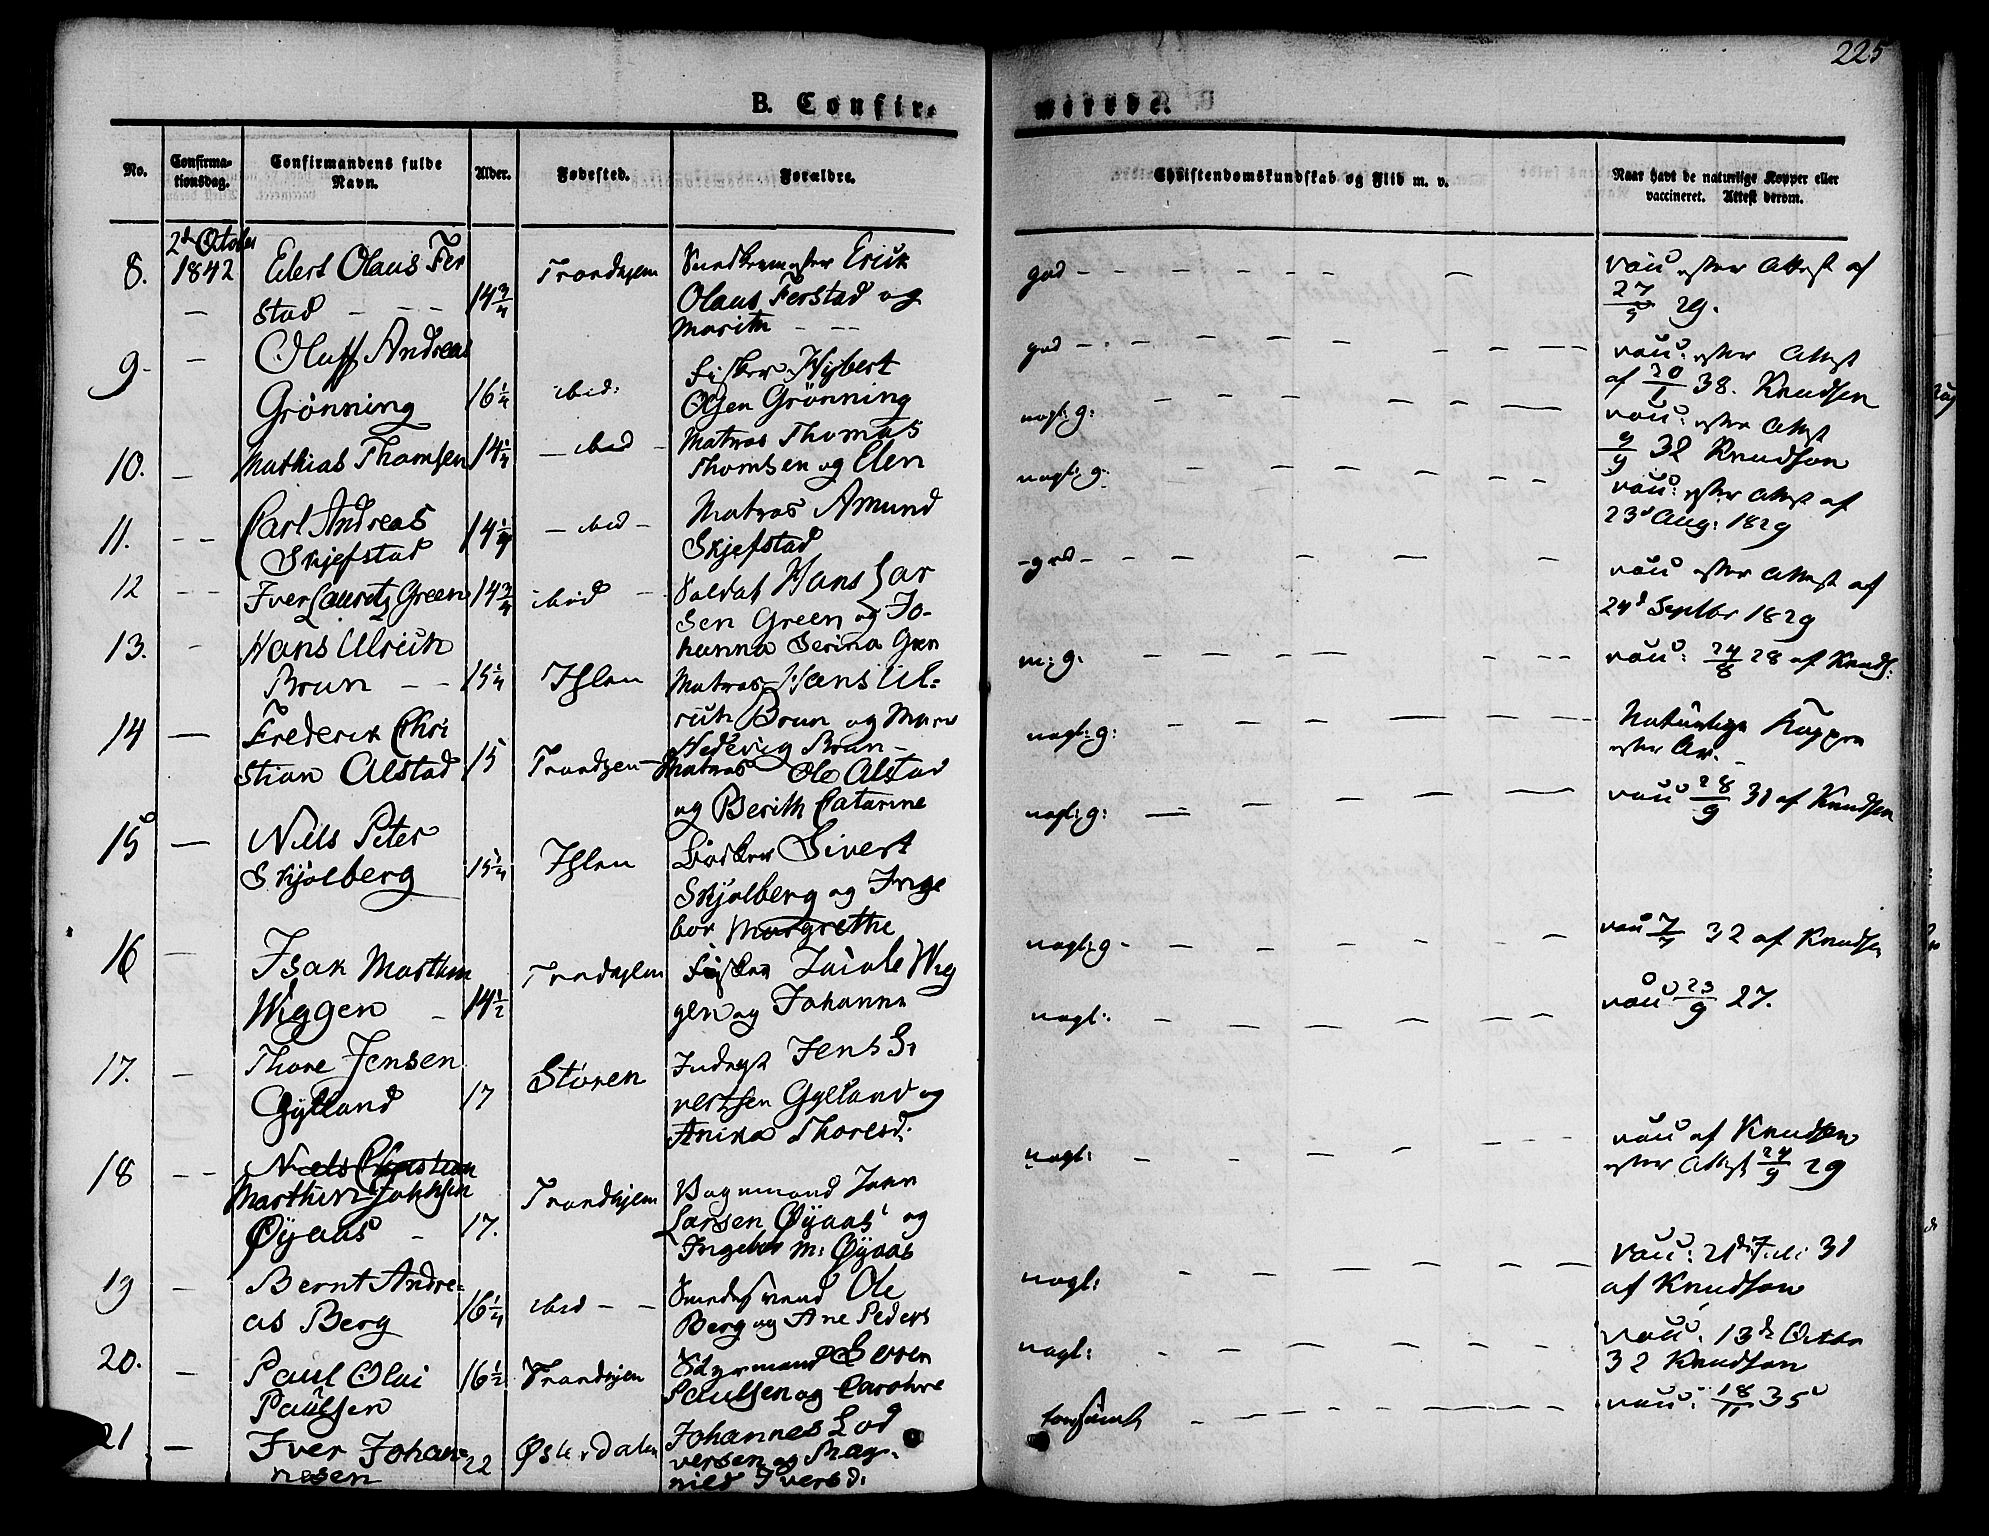 225
B. Confir=
mirede.
No.
Confirma-
tionsdag.
Confirmandens fulde
Navn.
Alder.
Fødested.
Forældre.
Christendomskundskab og Flid m. v.
Naar havt de naturlige Kopper eller
vaccineret. Attest derom.
8.
2d October
1842
Edert Olaus Fer
stad
14 3/4
Trondhjem
Erick
Olaus Ferstad og
Marith
god
vacc: efter Attest af
27/5 29.
9.
Oluff Andreas
Grønning
16 1/4
ibid:
Fisker
Olsen Grønning
god
vacc: efter Attest
af 20/1 38. Knudsen
10.
Mathias Thomsen
14 1/4
ibid
Matros Thomas
Thomsen og Elen
nogl: g:
vacc: efter Attest
9/9 32 Knudson
11.
Carl Andreas
Skjefstad
14 1/4
ibid
Matros Amund
Skjefstad
nogl: g.
vacc: efter Attest af
23d Aug: 1829
12
Iver Lauritz Green
14 3/4
ibid
Soldat Hans Lar
sen Green og Jo-
hanna Serina Green
god
vacc efter Attest af
24d Septbr 1829
13.
Hans Ulrich
Brun
15 1/4
Ihlen
Matros Hans Ul-
rich Brun og
Hedevig Brun
m: g:
vacc: 24/8 28 af Knuds:
14
Frederik Chri
stian Alstad
15
Trondhjem
Matros Ole Alstad
og Berith Catarine
nogl: g:
Naturlige Kopper
efter Ar.
15
Niels Peter
Skjølberg
15 1/4
Ihlen
Sivert
Skjølberg og Inge
bor Margrethe
nogl: g:
vacc 28/9 31 af Knudsen
16
Isak Marthin
Wiggen
14 1/2
Trondhjem
Fisker Jacob Wig
gen og Johanna
nogl: g
vacc 7/7 32 af Knudsen
17.
Thore Jensen
Gylland
17
Støren
Inderst Jens Si
vertsen Gylland og
Anika Thoresd:
nogl:
vacc 23/9 27.
18
Niels Christian
Marthin Johnsen
Øyaas
17.
Trondhjem
John
Larsen Øyaas og
Ingebor M: Øyaas
nogl:
vacc af Knudsen
efter Attest 24/9 29
19
Bernt Andre-
as Berg
16 1/4
ibid
Ole
Berg og Ane Peders
nogl:
vacc: 21de Juli 31
af Knudson
20.
Paul Olai
Paulsen
16 1/2
Trondhjem
Styrmand
Paulsen og Caroline
nogl:
vacc: 13de Octbr
32 Knudson
21
Iver Johan-
nesen
22
Østerdalen
Johannes
versen og Mag-
nild Iversd:
vacc: 18/11 35